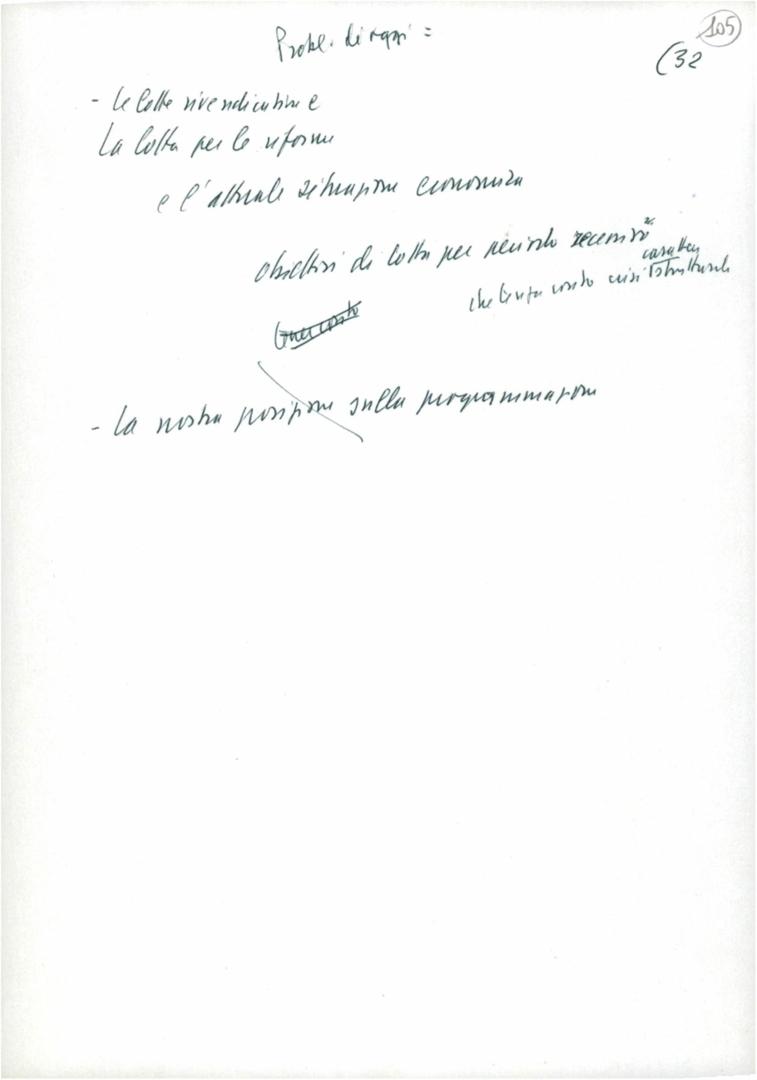 105
(32
Probl. di oggi =
- le lotte rivendicative e
La lotta per le riforme
e l'attuale situazione economica
obiettivi di lotta per periodo recessivo
caratteri
che tenga conto crisi strutturale
- La nostra posizione sulla programmazione